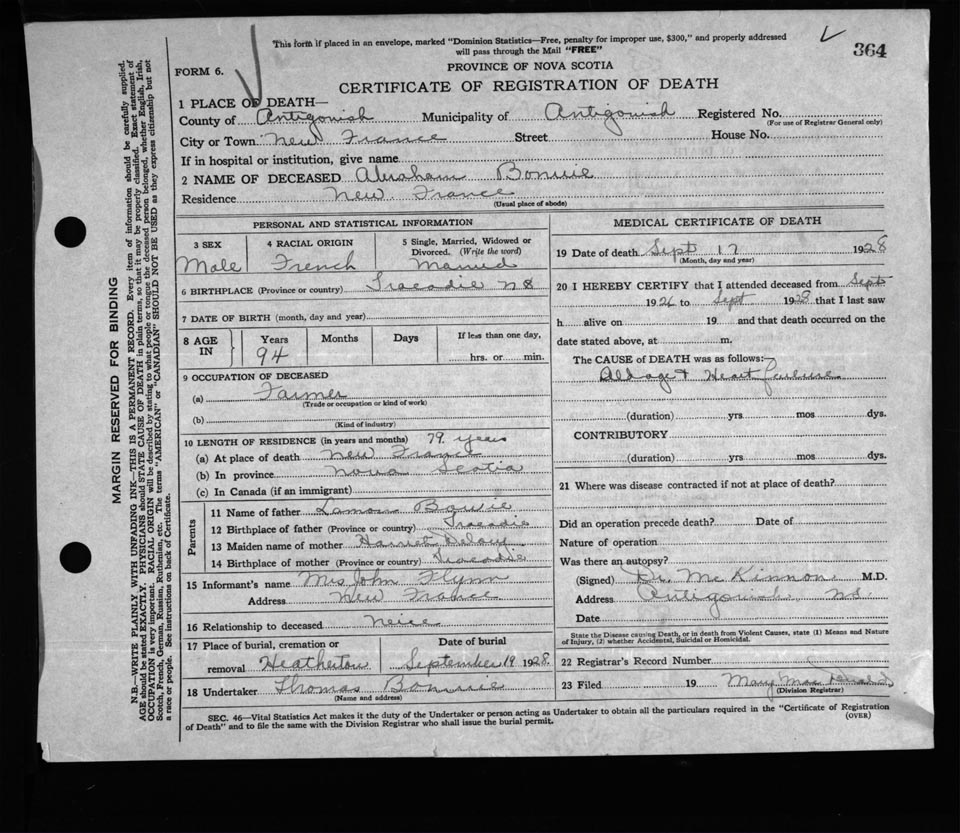 This form if placed in an envelope, marked "Dominion Statistics—Free, penalty for improper use, $300," and properly addressed
will pass through the Mail "FREE"
364
FORM 6.
PROVINCE OF NOVA SCOTIA
CERTIFICATE OF REGISTRATION OF DEATH
1 PLACE OF DEATH—
County of Antigonish Municipality of Antigonish Registered No.
(For use of Registrar General only)
City or Town New France Street House No.
If in hospital or institution, give name
2 NAME OF DECEASED Abraham Bonvie
Residence New France
(Usual place of abode)
PERSONAL AND STATISTICAL INFORMATION
3 SEX 4 RACIAL ORIGIN 5 Single, Married, Widowed or
Divorced. (Write the word)
Male French Married
6 BIRTHPLACE (Province or country) Tracadie NS
7 DATE OF BIRTH (month, day and year)
8 AGE IN Years Months Days If less than one day,
94 hrs. or min.
9 OCCUPATION OF DECEASED
(a) Farmer
(Trade or occupation or kind of work)
(b)
(Kind of industry)
10 LENGTH OF RESIDENCE (in years and months) 79 years
(a) At place of death New France
(b) In province Nova Scotia
(c) In Canada (if an immigrant)
Parents
11 Name of father
12 Birthplace of father (Province or country) Tracadie
13 Maiden name of mother Harriet
14 Birthplace of mother (Province or country) Tracadie
15 Informant's name Mrs John Flynn
Address New France
16 Relationship to deceased neice
17 Place of burial, cremation or Date of burial
removal Heatherton September 19 1928
18 Undertaker Thomas Bonvie
(Name and address)
MEDICAL CERTIFICATE OF DEATH
19 Date of death Sept 17 1928
(Month, day and year)
20 I HEREBY CERTIFY that I attended deceased from Sept
1926 to Sept 1928 that I last saw
h alive on 19 and that death occurred on the
date stated above, at m.
The CAUSE of DEATH was as follows:
Old age & Heart failure
(duration) yrs mos dys.
CONTRIBUTORY
(duration) yrs. mos dys.
21 Where was disease contracted if not at place of death?
Did an operation precede death? Date of
Nature of operation
Was there an autopsy?
(Signed) Dr. McKinnon M.D.
Address Antigonish NS
Date
State the Disease causing Death, or in death from Violent Causes, state (1) Means and Nature
of Injury, (2) whether Accidental, Suicidal or Homicidal.
22 Registrar's Record Number
23 Filed 19 May MacDonald
(Division Registrar)
SEC. 46—Vital Statistics Act makes it the duty of the Undertaker or person acting as Undertaker to obtain all the particulars required in the "Certificate of Registration
of Death" and to file the same with the Division Registrar who shall issue the burial permit.
(OVER)
MARGIN RESERVED FOR BINDING
N.B.—WRITE PLAINLY WITH UNFADING INK—THIS IS A PERMANENT RECORD. Every item of information should be carefully supplied.
AGE should be stated EXACTLY. PHYSICIANS should STATE CAUSE OF DEATH in plain terms, so that it may be properly classified. Exact statement of
OCCUPATION is very important. RACIAL ORIGIN will be described by stating to what people or tongue the deceased person belonged, whether English, Irish,
Scotch, French, German, Russian, Ruthenian, etc. The terms "AMERICAN" or "CANADIAN" SHOULD NOT BE USED as they express citizenship but not
a race or people. See instructions on back of Certificate.